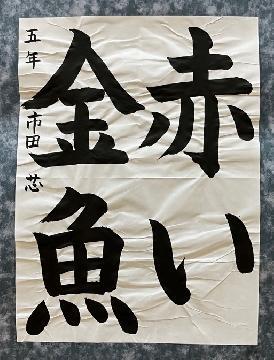 赤い
金魚
五年 市田 芯